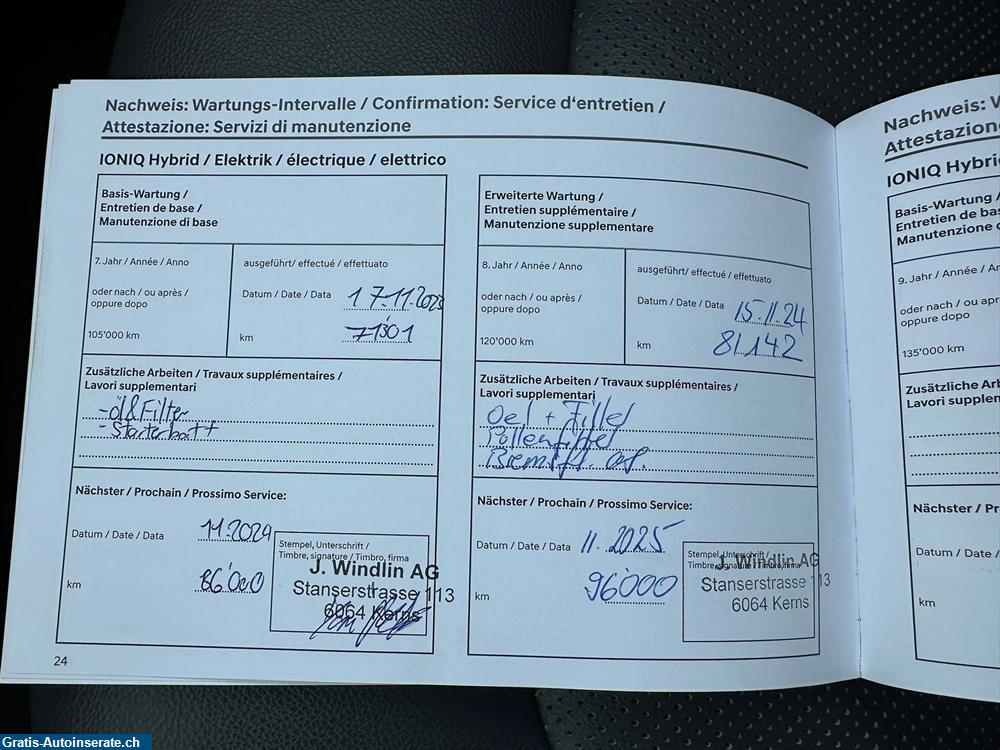 Nachweis: Wartungs-Intervalle / Confirmation: Service d'entretien /
Attestazione: Servizi di manutenzione
IONIQ Hybrid / Elektrik / électrique / elettrico
Basis-Wartung /
Entretien de base /
Manutenzione di base
7. Jahr / Année / Anno
oder nach / ou après /
oppure dopo
105'000 km
ausgeführt/ effectué / effettuato
Datum / Date / Data 17.11.2023
km 71301
Zusätzliche Arbeiten / Travaux supplémentaires /
Lavori supplementari
- Öl & Filter
- Starterbatt
Nächster / Prochain / Prossimo Service:
Datum / Date / Data 11.2024
km 86'000
Stempel, Unterschrift /
Timbre, signature / Timbro, firma
J. Windlin AG
Stanserstrasse 113
6064 Kerns
Erweiterte Wartung /
Entretien supplémentaire /
Manutenzione supplementare
8. Jahr / Année / Anno
oder nach / ou après /
oppure dopo
120'000 km
ausgeführt/ effectué / effettuato
Datum / Date / Data 15.11.24
km 81142
Zusätzliche Arbeiten / Travaux supplémentaires /
Lavori supplementari
Oel + Filter
Pollenfilter
Nächster / Prochain / Prossimo Service:
Datum / Date / Data 11.2025
km 96'000
Stempel, Unterschrift /
Timbre, signature / Timbro, firma
J. Windlin AG
Stanserstrasse 113
6064 Kerns
24
Nachweis: W
Attestazion
IONIQ Hybri
Basis-Wartung /
Entretien de bas
Manutenzione d
9. Jahr / Année / An
oder nach / ou apr
oppure dopo
135'000 km
Zusätzliche Arb
Lavori supplem
Nächster / Pr
Datum / Date /
km
Gratis-Autoinserate.ch